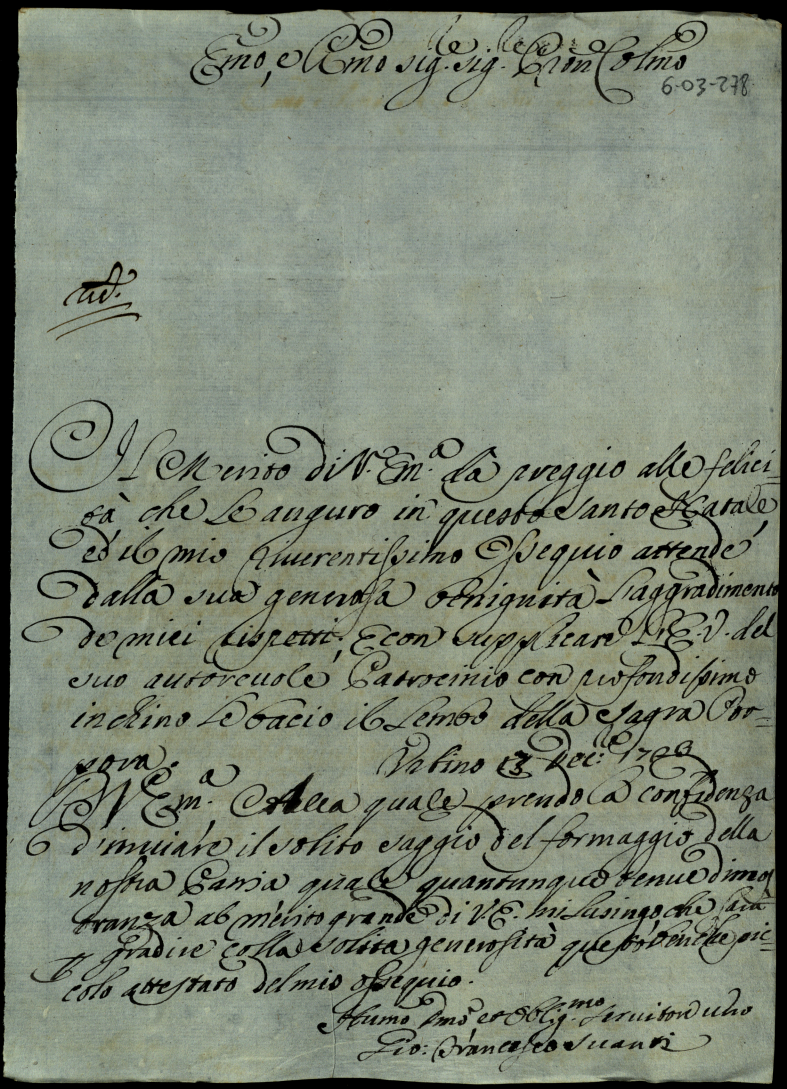 Emo, e Rmo sig.re sig.re Pron Colmo
6-03-278
Il Merito di V. Em.a dà preggio alle felici-
tà che Le auguro in questo Santo Natale,
ed il mio riverentissimo Ossequio attende
dalla sua generosa benignità l'aggradimento
de miei rispetti, E con supplicare L'E.V. del
suo autorevole Patrocinio con profondissimo
inchino Le bacio il Lembo della Sagra Por-
pora.
Xbre 1703
V. Em.a Alla quale prendo la confidenza
d'inviare il solito saggio del formaggio della
nostra Patria quale quantunque tenue dimos
tranza al merito grande di V.E. mi lusingo che sarà
p gradire colla solita generosità questo benche pic-
colo attestato del mio ossequio.
Humo Dmo et Oblig.mo Servitore vero
Gio: Francesco